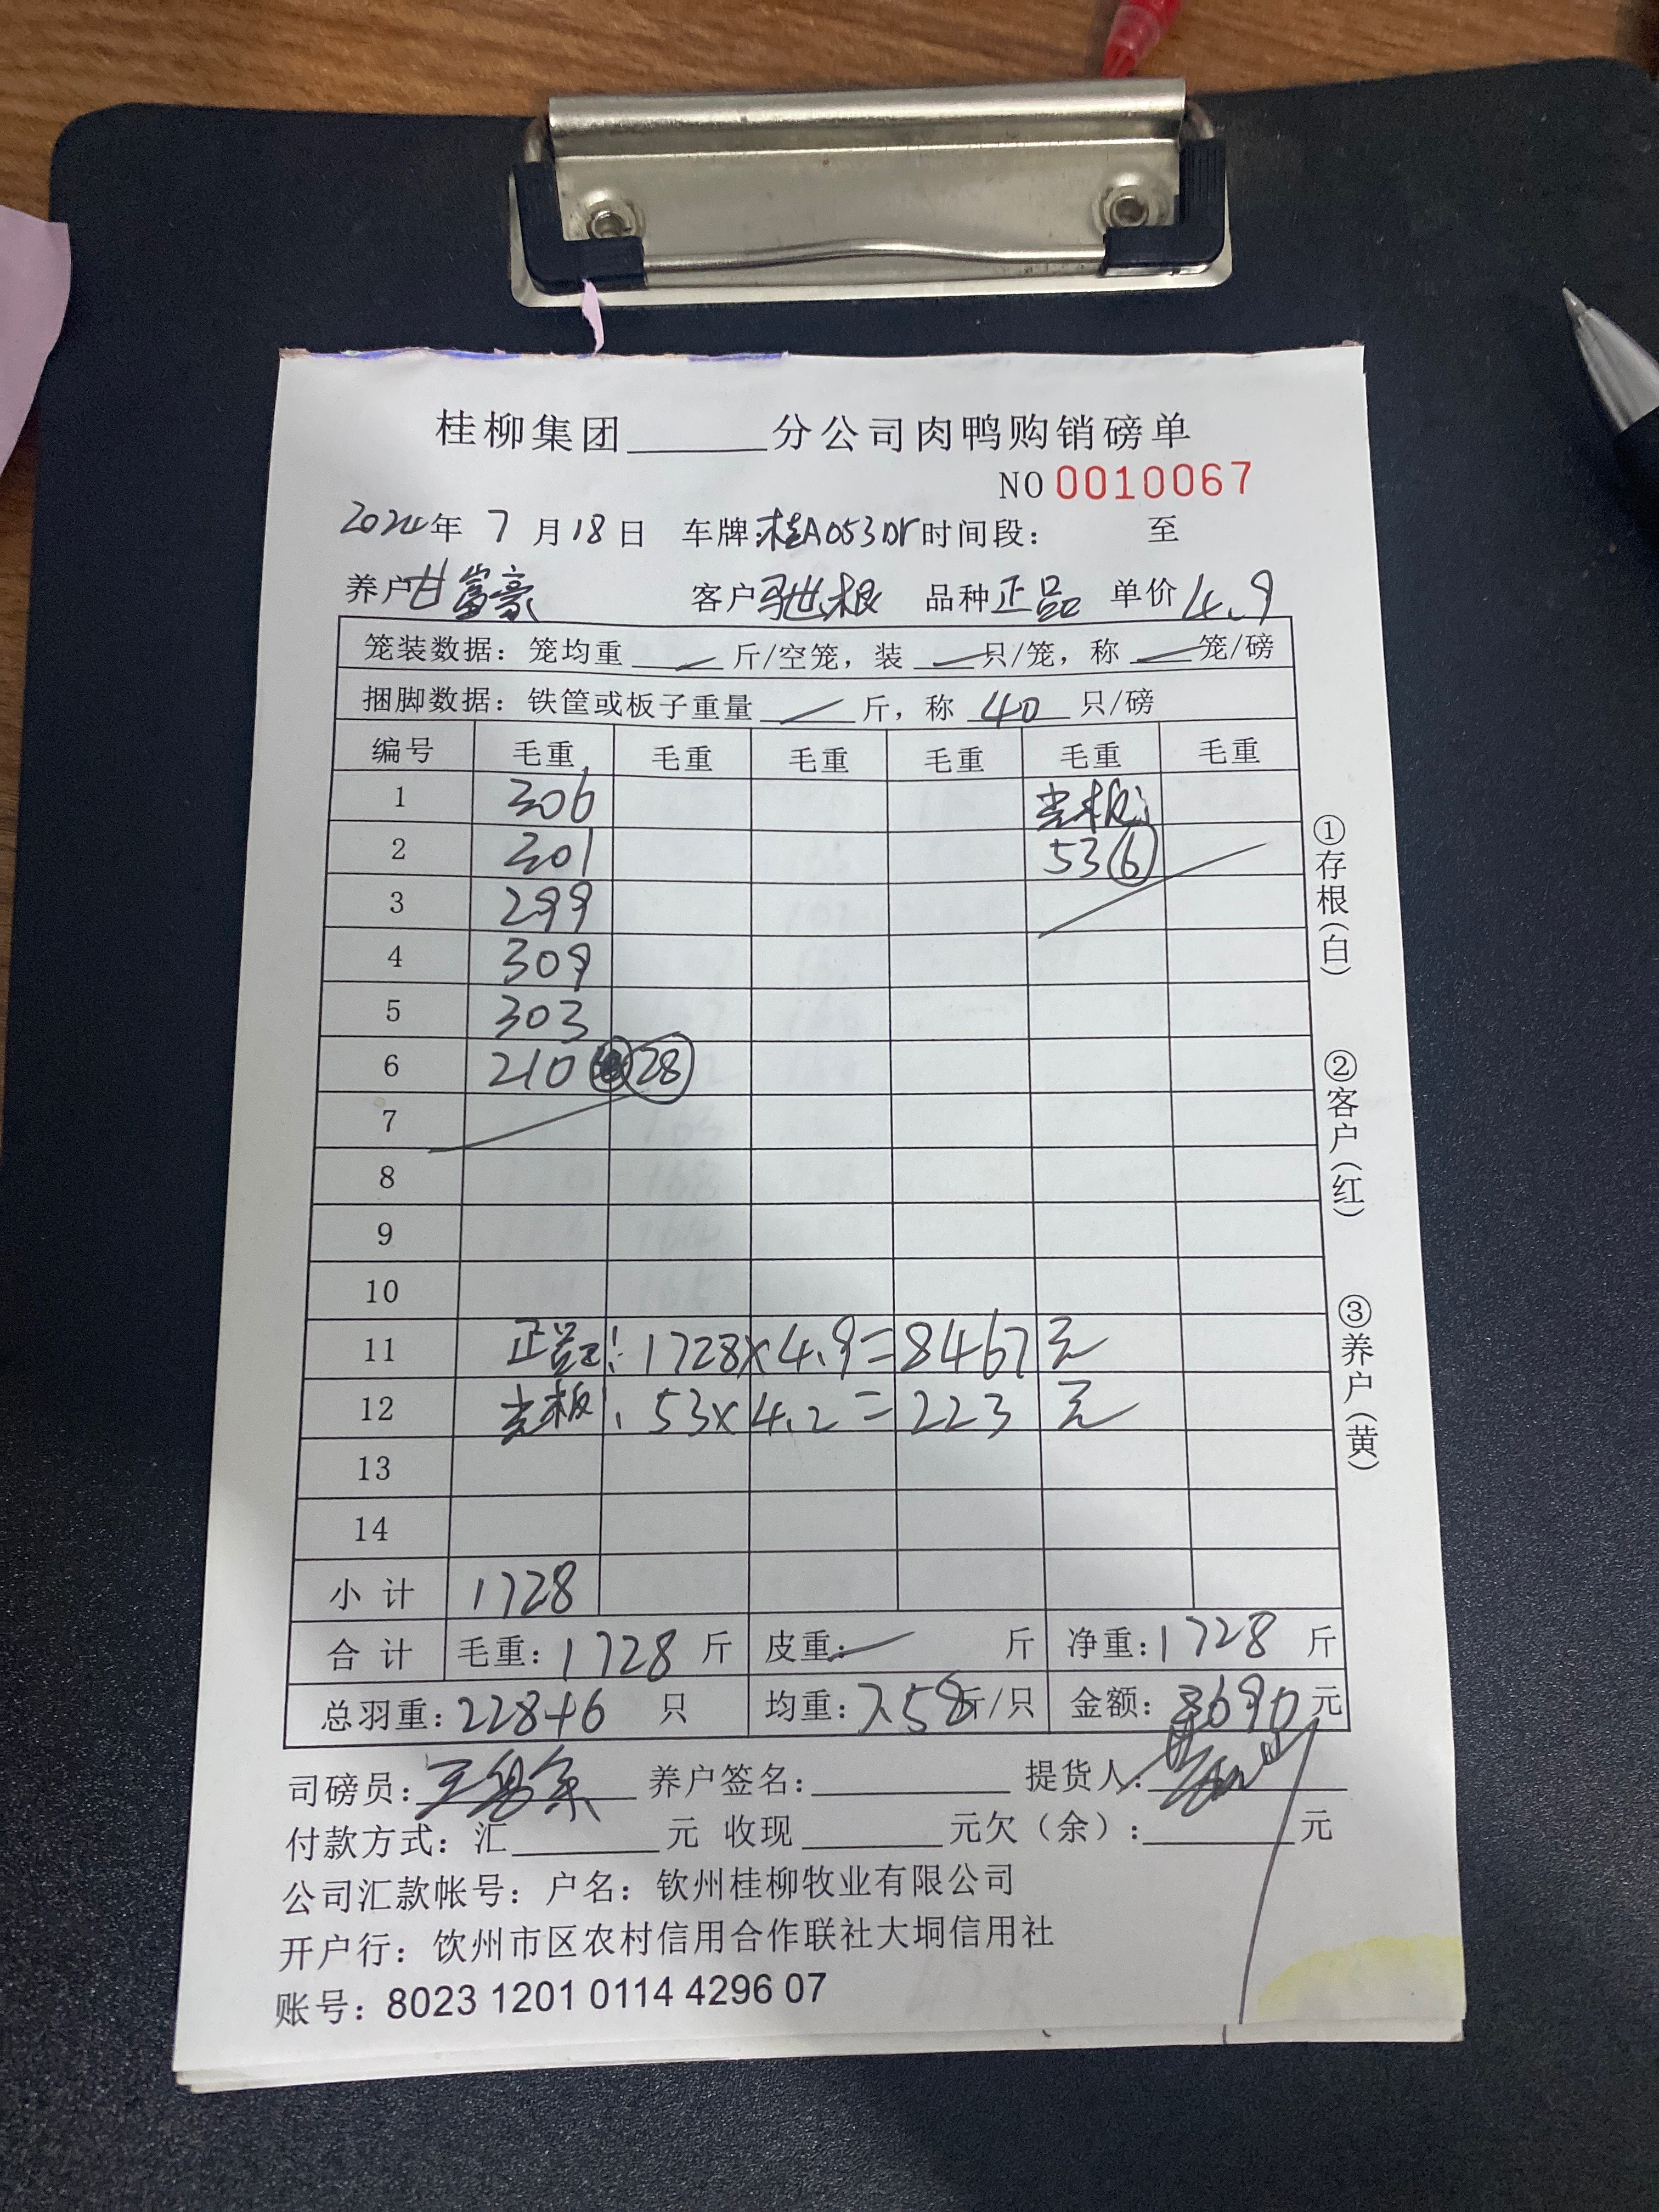 桂柳集团______分公司肉鸭购销磅单
NO 0010067
2024年 7 月 18 日 车牌:桂A053Dr 时间段: 至
养户 甘富豪 客户 驰根 品种 正品 单价 4.9
笼装数据: 笼均重 斤/空笼, 装 只/笼, 称 笼/磅
捆脚数据: 铁筐或板子重量 斤, 称 40 只/磅
编号 毛重 毛重 毛重 毛重 毛重 毛重
1 306 光板:
2 301 53 6
3 299
4 309
5 303
6 210 28
7
8
9
10
11 正品: 1728×4.9=8467元
12 光板: 53×4.2=223元
13
14
小计 1728
合计 毛重: 1728 斤 皮重: 斤 净重: 1728 斤
总羽重: 228+6 只 均重: 7.58斤/只 金额: 8690元
司磅员: 养户签名: 提货人:
付款方式: 汇______元 收现______元欠(余):______元
公司汇款帐号: 户名: 钦州桂柳牧业有限公司
开户行: 钦州市区农村信用合作联社大垌信用社
账号: 8023 1201 0114 4296 07
①存根(白)
②客户(红)
③养户(黄)